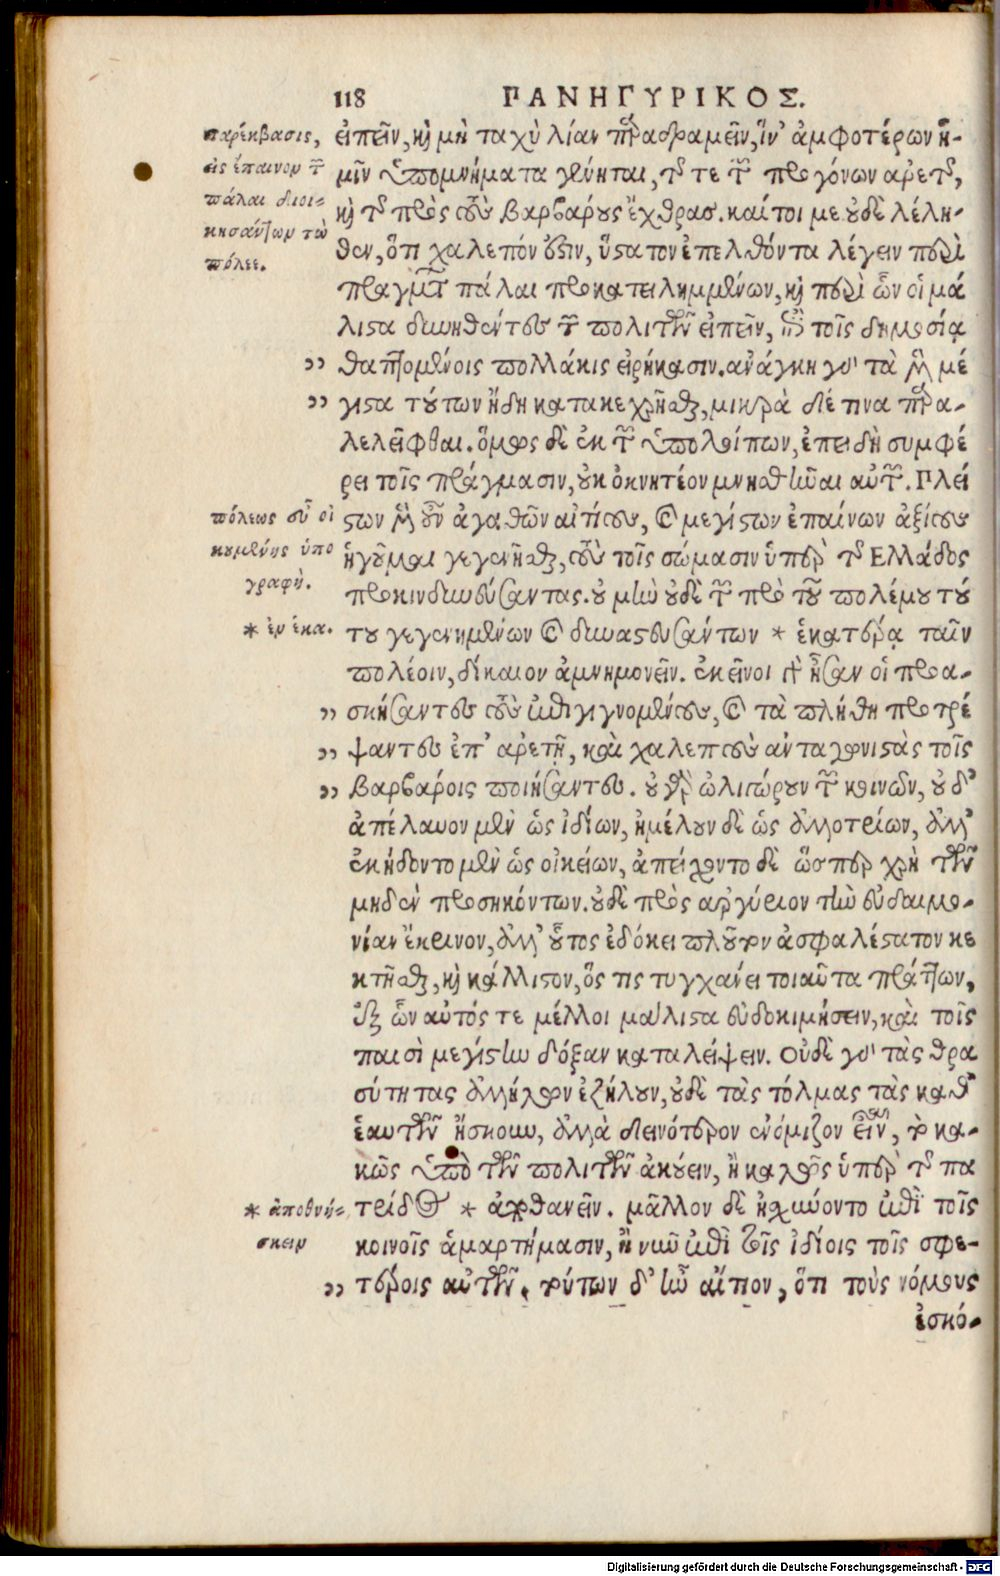 118 ΠΑΝΗΓΥΡΙΚΟΣ.
παρέκβασις,
εἰς ἔπαινον τῶν
πάλαι διοι-
κησάντων τὼ
πόλεε.
εἰπεῖν, καὶ μὴ ταχὺ λίαν παραδραμεῖν, ἵν' ἀμφοτέρων ἡ-
μῖν ὑπομνήματα γένηται, τῆς τε τῶν προγόνων ἀρετῆς,
καὶ τῆς πρὸς τοὺς βαρβάρους ἔχθρας. καίτοι με οὐδὲ λέλη-
θεν, ὅτι χαλεπόν ἐστιν, ὕστατον ἐπελθόντα λέγειν περὶ
πραγμάτων πάλαι προκατειλημμένων, καὶ περὶ ὧν οἱ μά
λιστα δυνηθέντες τῶν πολιτῶν εἰπεῖν, ἐπὶ τοῖς δημοσίᾳ
,, θαπτομένοις πολλάκις εἰρήκασιν. ἀνάγκη γὰρ τὰ μὲν μέ
,, γιστα τούτων ἤδη κατακεχρῆσθαι, μικρὰ δέ τινα παρα-
λελεῖφθαι. ὅμως δὲ ἐκ τῶν ὑπολοίπων, ἐπειδὴ συμφέ
ρει τοῖς πράγμασιν, οὐκ ὀκνητέον μνησθῆναι αὐτῶν. Πλεί
πόλεως εὖ οἰ
κουμένης ὑπο
γραφή.
στων μὲν οὖν ἀγαθῶν αἰτίους, καὶ μεγίστων ἐπαίνων ἀξίους
ἡγοῦμαι γεγενῆσθαι, τοὺς τοῖς σώμασιν ὑπὲρ τῆς Ἑλλάδος
προκινδυνεύσαντας. οὐ μὴν οὐδὲ τῶν πρὸ τοῦ πολέμου τού
* ἐν ἑκα.
του γεγενημένων καὶ δυναστευσάντων * ἑκατέρᾳ ταῖν
πολέοιν, δίκαιον ἀμνημονεῖν. ἐκεῖνοι γὰρ ἦσαν οἱ προα-
,, σκήσαντες τοὺς ἐπιγιγνομένους, καὶ τὰ πλήθη προτρέ
,, ψαντες ἐπ' ἀρετῇ, καὶ χαλεποὺς ἀνταγωνιστὰς τοῖς
,, βαρβάροις ποιήσαντες. οὐ γὰρ ὠλιγώρουν τῶν κοινῶν, οὐδ'
ἀπέλαυον μὲν ὡς ἰδίων, ἠμέλουν δὲ ὡς ἀλλοτρίων, ἀλλ'
ἐκήδοντο μὲν ὡς οἰκείων, ἀπείχοντο δὲ ὥσπερ χρὴ τῶν
μηδὲν προσηκόντων. οὐδὲ πρὸς ἀργύριον τὴν εὐδαιμο-
νίαν ἔκρινον, ἀλλ' οὗτος ἐδόκει πλοῦτον ἀσφαλέστατον κε
κτῆσθαι, καὶ κάλλιστον, ὅς τις τυγχάνει τοιαῦτα πράττων,
ἐξ ὧν αὐτός τε μέλλοι μάλιστα εὐδοκιμήσειν, καὶ τοῖς
παισὶ μεγίστην δόξαν καταλείψειν. Οὐδὲ γὰρ τὰς θρα
σύτητας ἀλλήλων ἐζήλουν, οὐδὲ τὰς τόλμας τὰς καθ'
ἑαυτῶν ἤσκουν, ἀλλὰ δεινότερον ἐνόμιζον εἶναι, τὸ κα-
κῶς ὑπὸ τῶν πολιτῶν ἀκούειν, ἢ καλῶς ὑπὲρ τῆς πα
* ἀποθνή-
σκειν
τρίδος * ἀποθανεῖν. μᾶλλον δὲ ᾐσχύνοντο ἐπὶ τοῖς
κοινοῖς ἁμαρτήμασιν, ἢ νῦν ἐπὶ τοῖς ἰδίοις τοῖς σφε-
,, τέροις αὐτῶν. τούτων δ' ἦν αἴτιον, ὅτι τοὺς νόμους
ἐσκό-
Digitalisierung gefördert durch die Deutsche Forschungsgemeinschaft - DFG